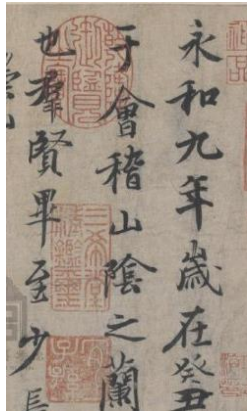 永和九年歲在癸丑
于會稽山陰之蘭
也羣賢畢至少長